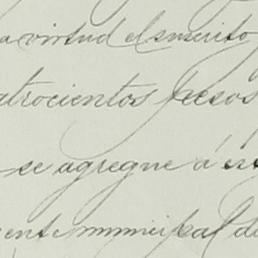 a virtud el suscrito
atrocientos pesos
se agregue á es
ente municipal de